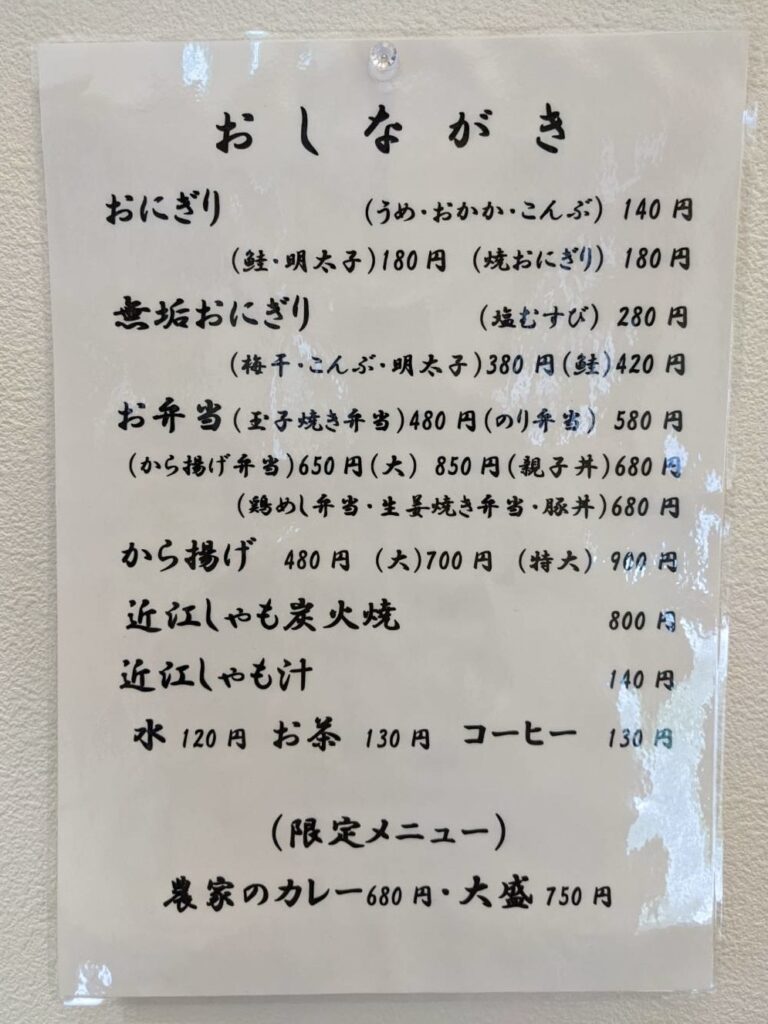 おしながき
おにぎり (うめ・おかか・こんぶ) 140円
(鮭・明太子)180円 (焼おにぎり) 180円
無垢おにぎり (塩むすび) 280円
(梅干・こんぶ・明太子)380円(鮭)420円
お弁当(玉子焼き弁当)480円(のり弁当) 580円
(から揚げ弁当)650円(大) 850円(親子丼)680円
(鶏めし弁当・生姜焼き弁当・豚丼)680円
から揚げ 480円 (大)700円 (特大) 900円
近江しゃも炭火焼 800円
近江しゃも汁 140円
水 120円 お茶 130円 コーヒー 130円
(限定メニュー)
農家のカレー680円・大盛 750円